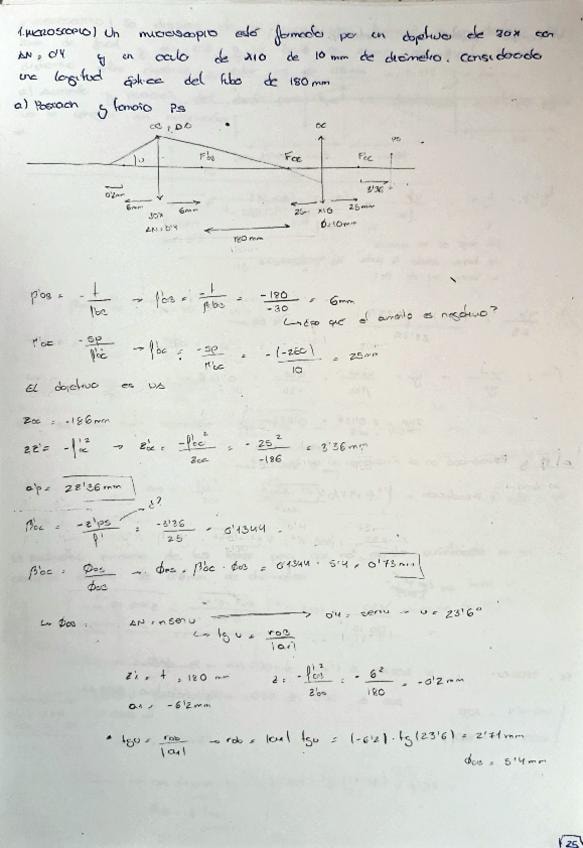 1.MICROSCOPIO) Un microscopio está formado por un objetivo de 30x con
AN = 0'4 y un ocular de x10 de 10 mm de diámetro. Considerando
una longitud óptica del tubo de 180 mm
a) Posición y tamaño PS
OB, DA
OC
PS
u
F'ob
Foc
F'oc
0'2mm
6mm
6mm
25m
x10
25mm
3'36
30x
AN=0'4
Ø=10mm
180mm
β'OB = - t / f'ob → f'OB = -t / βob = -180 / -30 = 6mm
↳ por que el aumento es negativo?
Γ'oc = -sp / f'oc → f'oc = -sp / Γ'oc = -(-250) / 10 = 25mm
El objetivo es DA
Zoc = -186mm
zz' = -f'oc² → z'oc = -f'oc² / zoc = - 25² / -186 = 3'36mm
a'p = 28'36mm
¿?
β'oc = -z'ps / f' = -3'36 / 25 = 0'1344
β'oc = Øps / Øob → Øps = β'oc · Øob = 0'1344 · 5'4 = 0'73mm
↳ Øob : AN = n senu → 0'4 = senu → u = 23'6º
↳ tg u = rob / |a1|
z'1 = t = 180 mm z = -f'ob² / z'ob = - 6² / 180 = -0'2mm
a1 = -6'2mm
• tgu = rob / |a1| → rob = |a1| tgu = (-6'2) · tg(23'6) = 2'71mm
Øob = 5'4mm
25